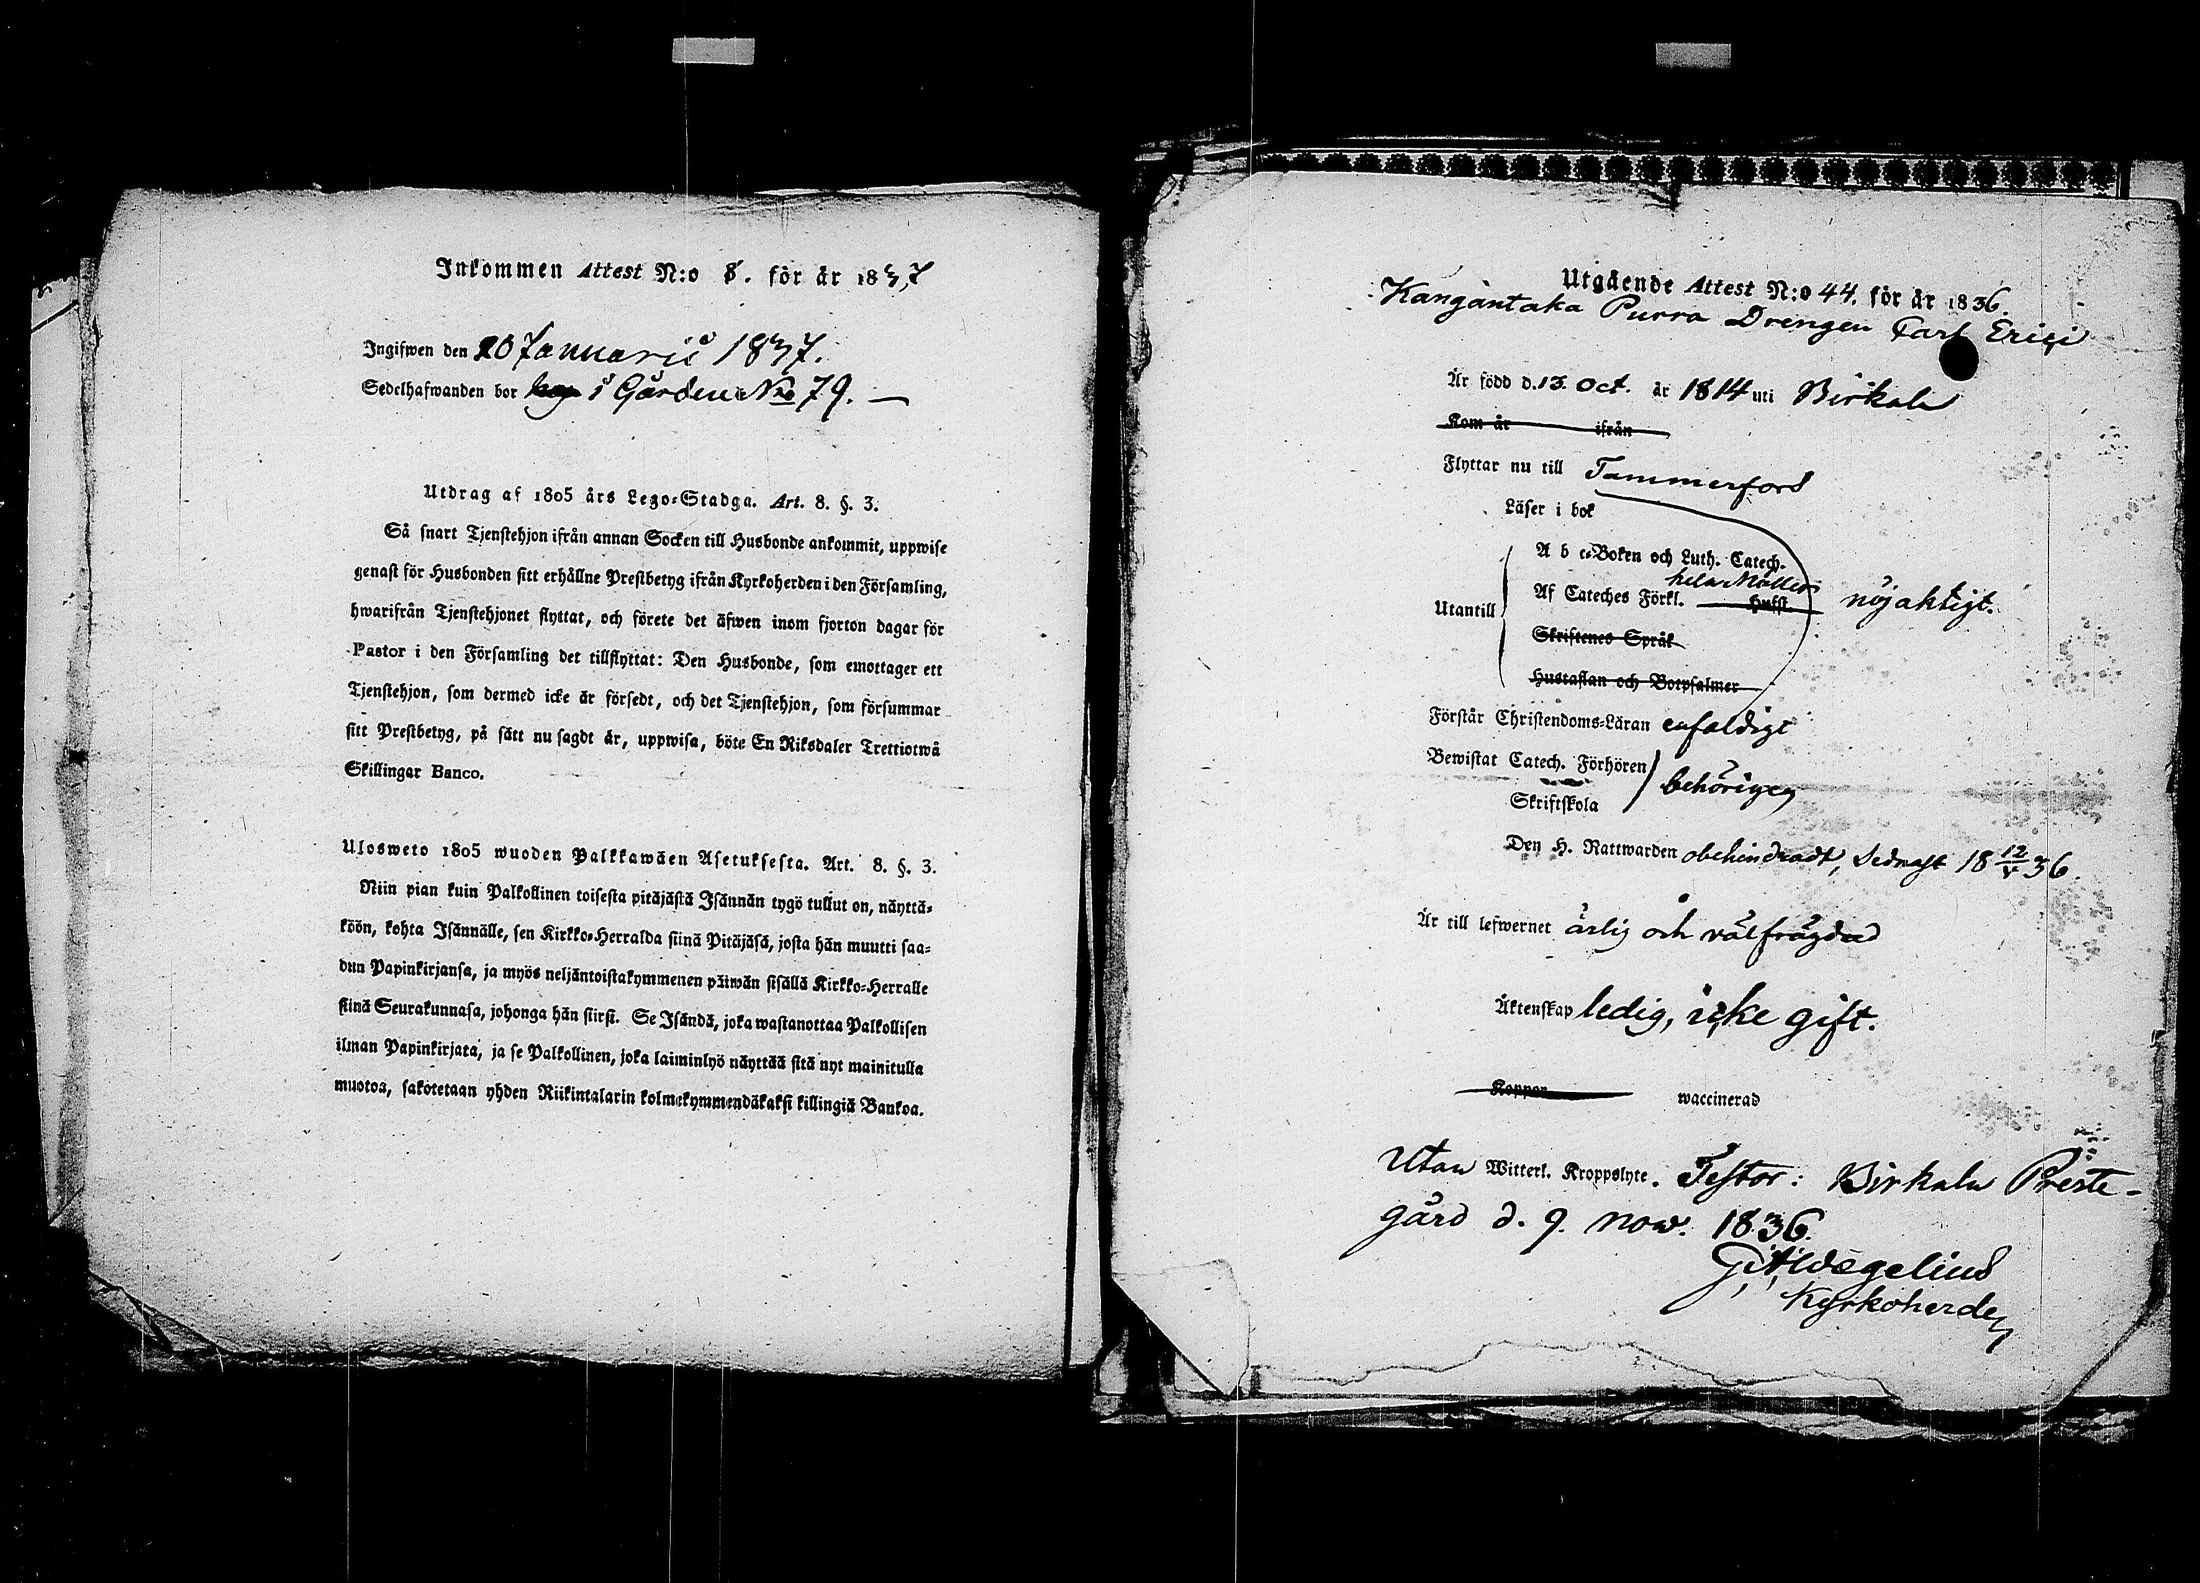 Inkommen Attest N:o 8. för år 1837
Ingifwen den 20 Januarii 1837.
Sedelhafwanden bor i Gården No 79. —
Utdrag af 1805 års Lego-Stadga. Art. 8. §. 3.
Så snart Tjenstehjon ifrån annan Socken till Husbonde ankommit, uppwise
genast för Husbonden sitt erhållne Prestbetyg ifrån Kyrkoherden i den Församling,
hwarifrån Tjenstehjonet flyttat, och förete det äfwen inom fjorton dagar för
Pastor i den Församling det tillflyttat: Den Husbonde, som emottager ett
Tjenstehjon, som dermed icke är försedt, och det Tjenstehjon, som försummar
sitt Prestbetyg, på sätt nu sagdt är, uppwisa, böte En Riksdaler Trettiotwå
Skillingar Banco.
Ulosweto 1805 wuoden Palkkawäen Asetuksesta. Art. 8. §. 3.
Niin pian kuin Palkollinen toisesta pitäjästä Isännän tygö tullut on, näyttä-
köön, kohta Isännälle, sen Kirkko-Herralda siinä Pitäjäsä, josta hän muutti saa-
dun Papinkirjansa, ja myös neljäntoistakymmenen päiwän sisällä Kirkko-Herralle
siinä Seurakunnasa, johonga hän siirsi. Se Isändä, joka wastanottaa Palkollisen
ilman Papinkirjata, ja se Palkollinen, joka laiminlyö näyttää sitä nyt mainitulla
muotoa, sakotetaan yhden Riikintalarin kolmekymmendäkaksi killingiä Bankoa.
Utgående Attest N:o 44. för år 1836.
Kangantaka Purra Drengen Carl Erici
Är född d. 13 Oct. år 1814 uti Birkala
Kom år ifrån
Flyttar nu till Tammerfors
Läser i bok
A b c-Boken och Luth. Catech.
hela Möller
Utantill Af Cateches Förkl. Hufst. nöjaktigt.
Skriftenes Språk
Hustaflan och Botpsalmer
Förstår Christendoms-Läran enfaldigt
Bewistat Catech. Förhören behörigen
Skriftskola
Den H. Nattwarden obehindradt, sednast 18 12/V 36.
Är till lefwernet ärlig och välfrägdad
Äktenskap ledig, icke gift.
Koppor waccinerad
Utan Witterl. Kroppslyte. Testor: Birkala Preste-
gård d. 9. Nov. 1836.
Widegelius
Kyrkoherde